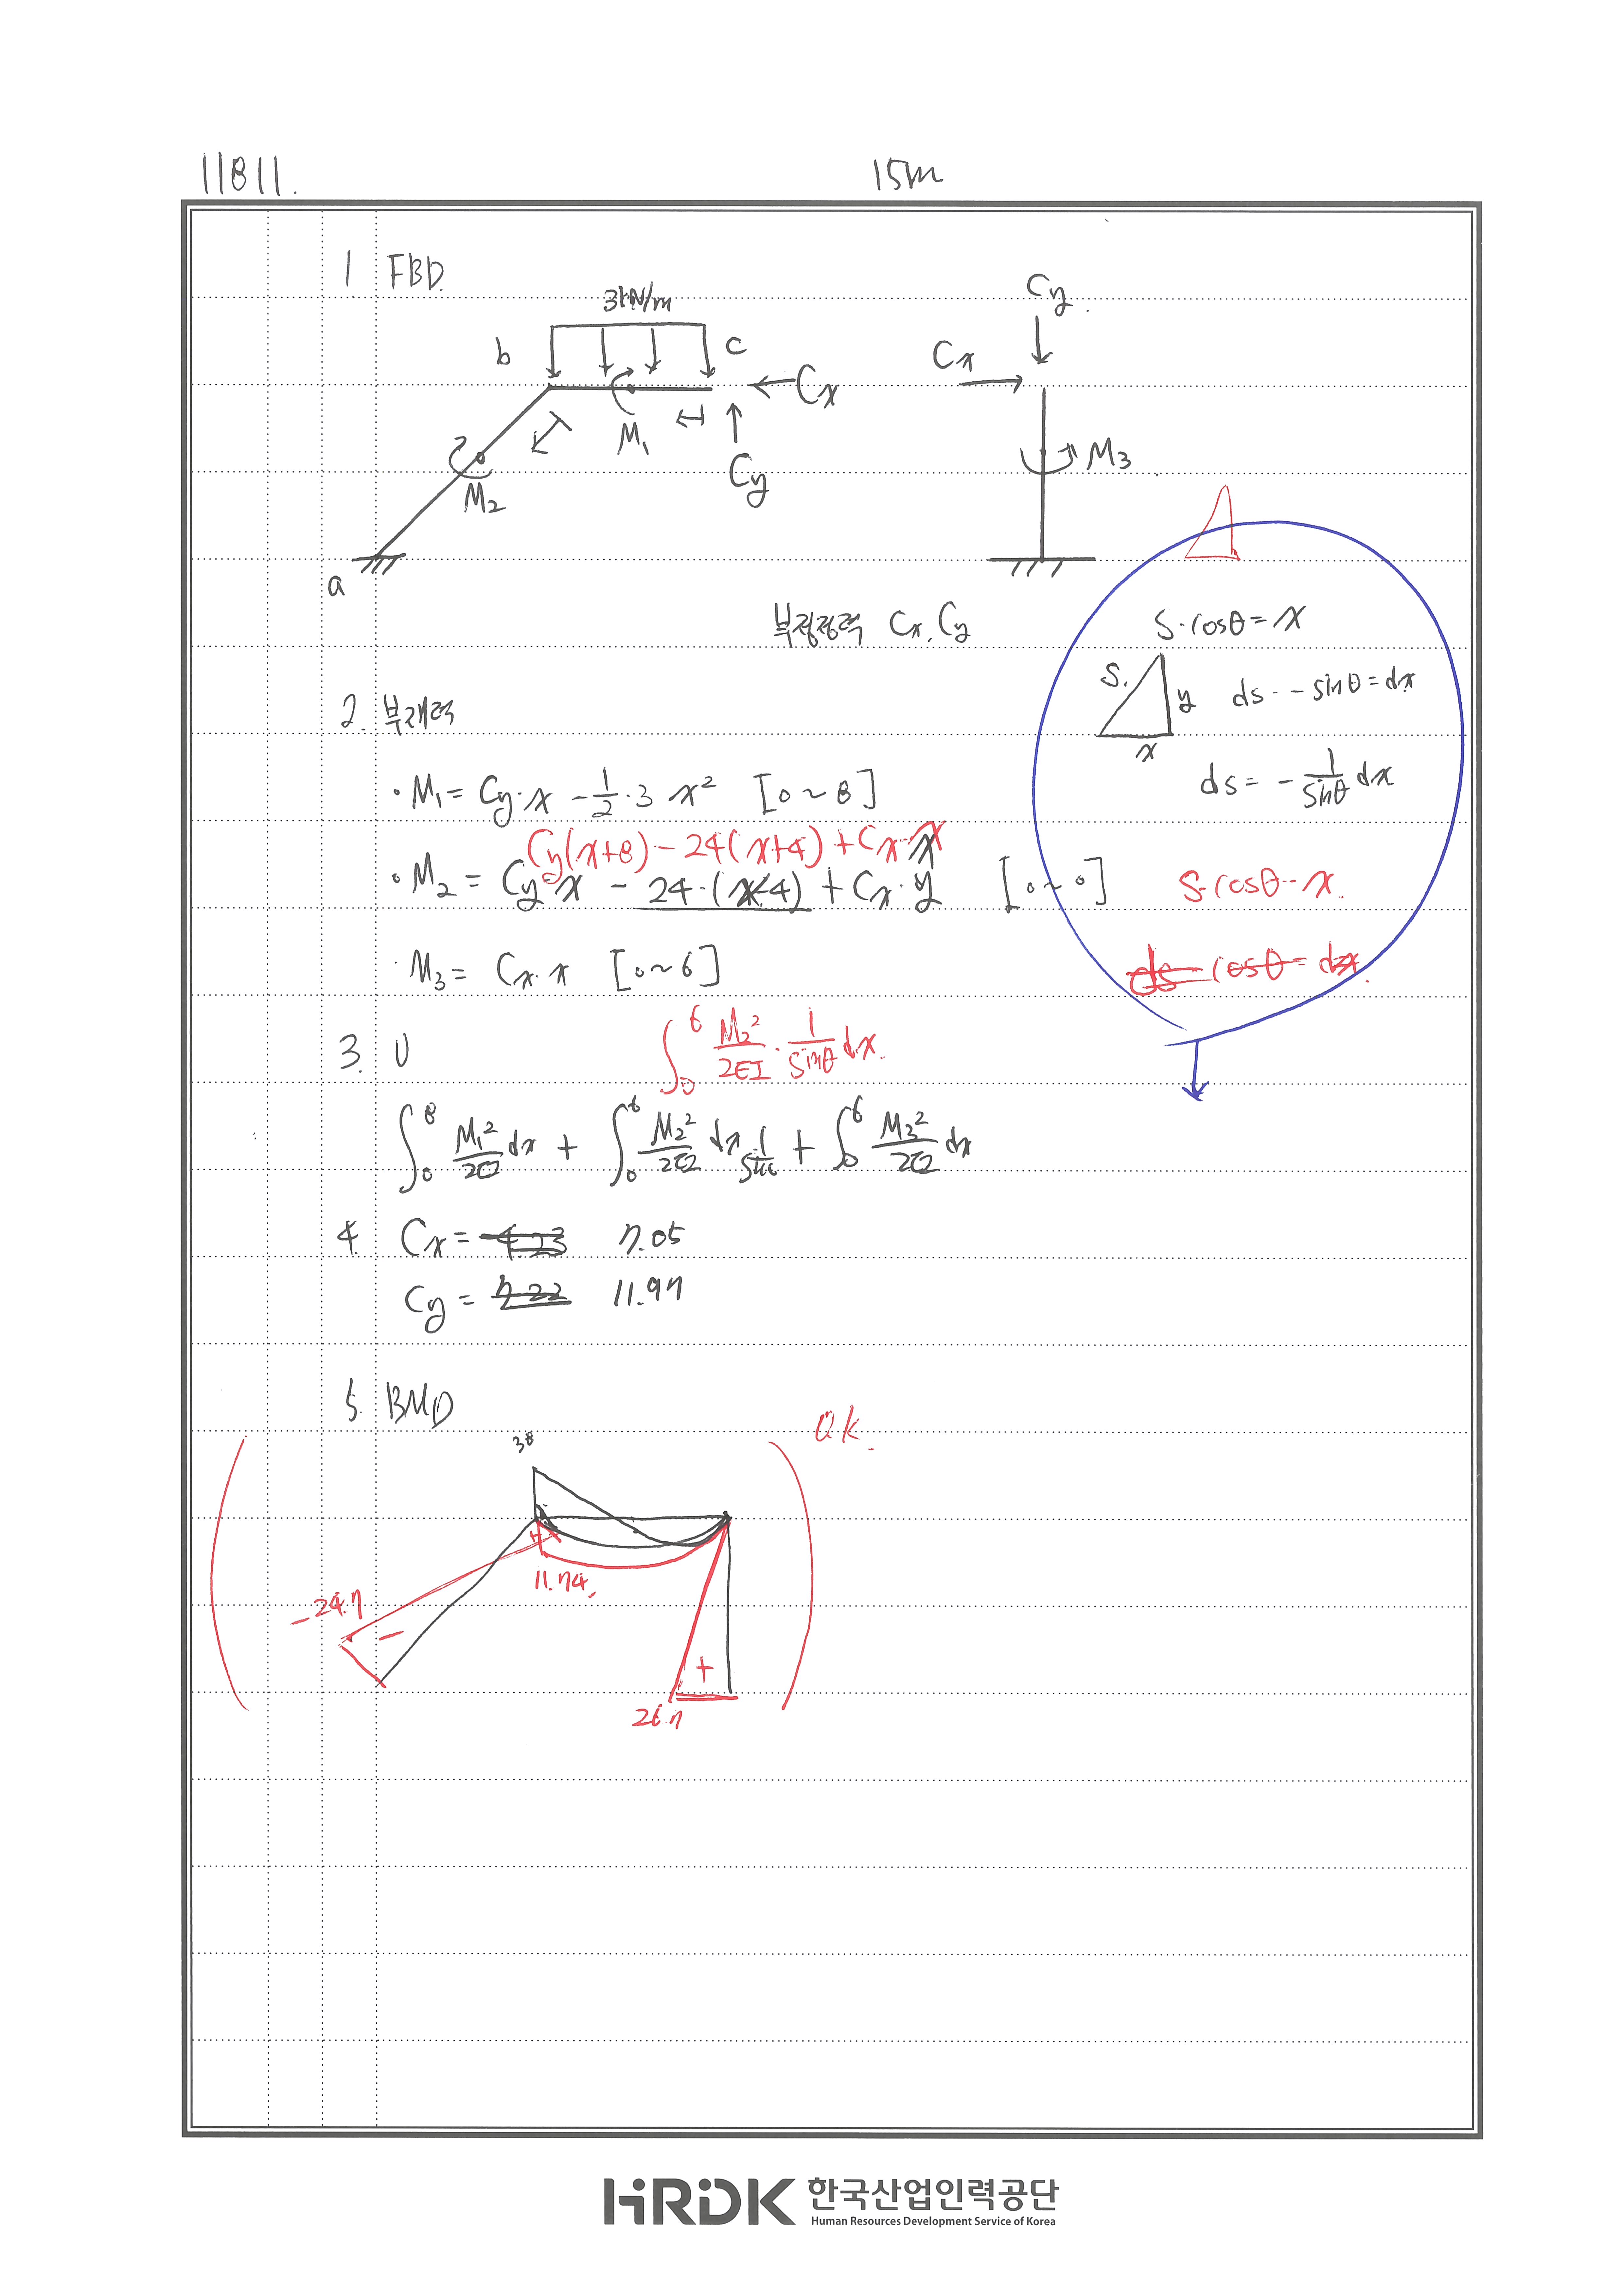 11811.
15m
1 FBD
3kN/m
b
c
Cx
M1
Cy
M2
a
Cy
Cx
M3
부정정력 Cx, Cy
S·cosθ=x
S.
y
x
ds·-sinθ=dx
ds = - 1/sinθ dx
2. 부재력
· M1 = Cy·x - 1/2·3 x² [0~8]
Cy(x+8) - 24(x+4) + Cx·x
· M2 = Cy·x - 24·(x-4) + Cx·y [0~0]
S·cosθ-x.
· M3 = Cx·x [0~6]
ds cosθ = dx
3. U
∫₀⁶ M2²/2EI · 1/sinθ dx
∫₀⁸ M1²/2EI dx + ∫₀⁶ M2²/2EI dx 1/sinθ + ∫₀⁶ M3²/2EI dx
4. Cx = 4.23 7.05
Cy = 7.22 11.97
5. BMD
O.K.
38
+
11.74
-24.7
-
+
26.7
HRDK 한국산업인력공단
Human Resources Development Service of Korea